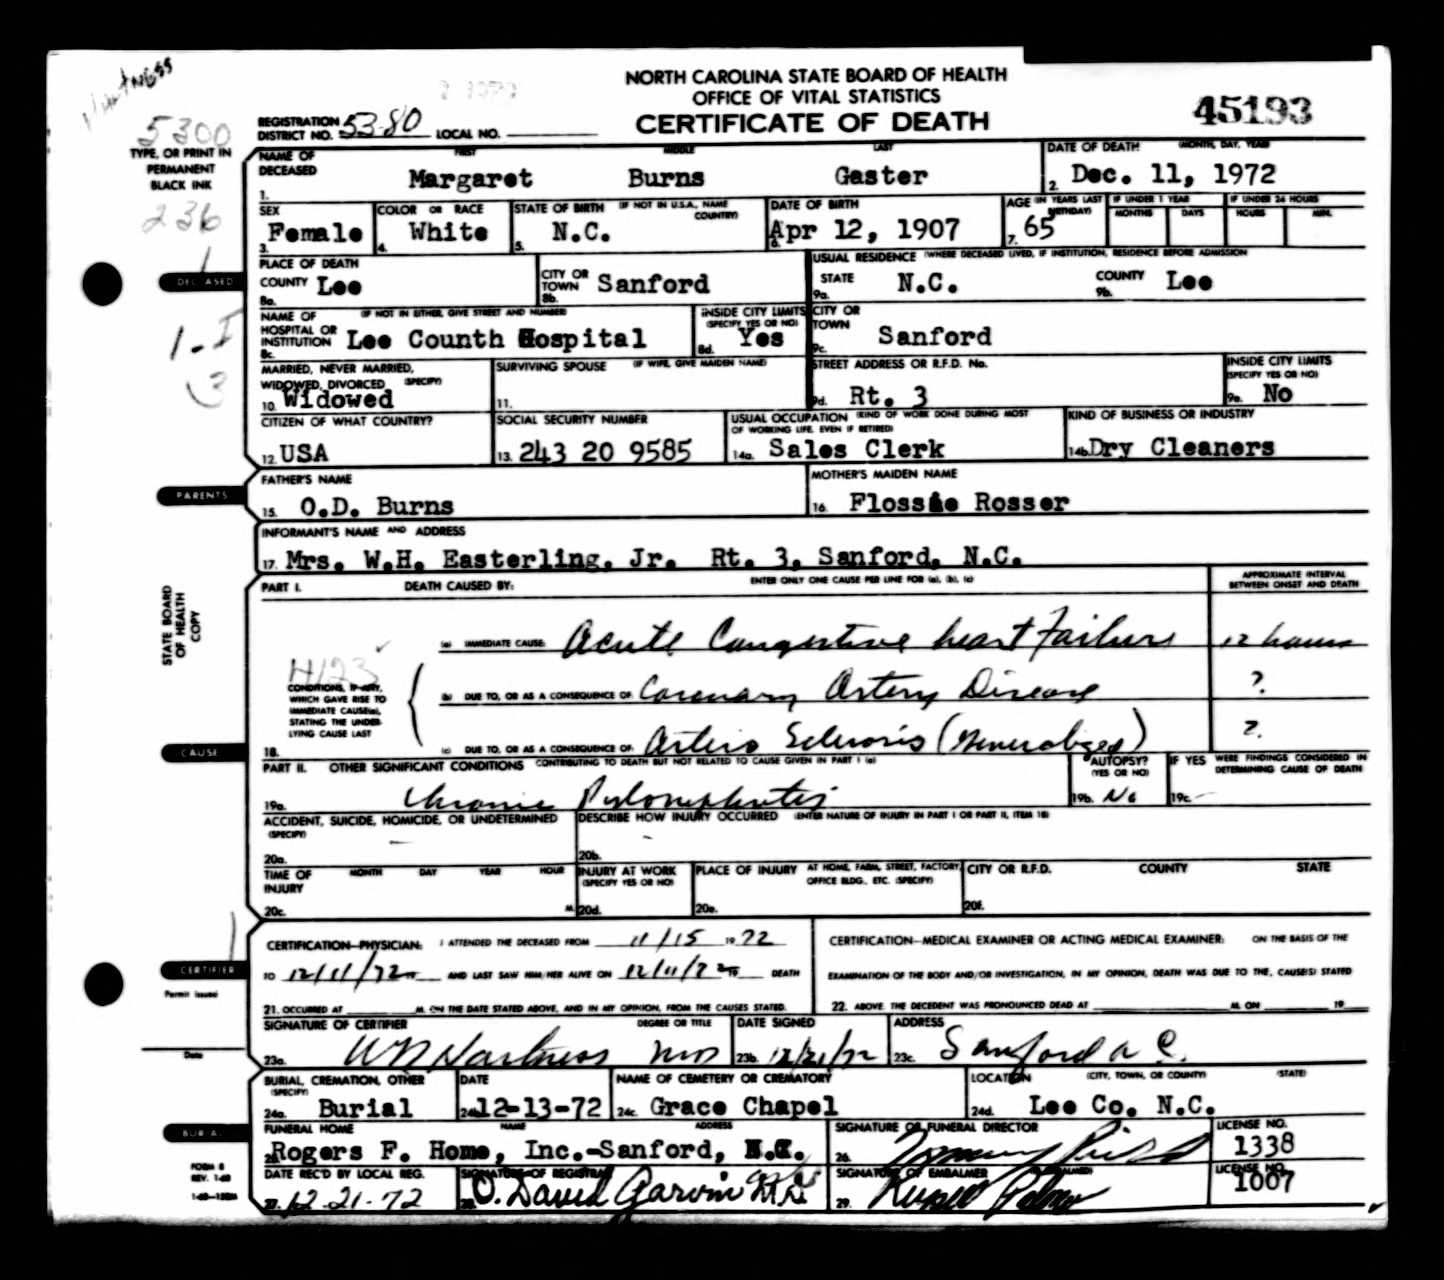 NORTH CAROLINA STATE BOARD OF HEALTH
OFFICE OF VITAL STATISTICS
CERTIFICATE OF DEATH
45193
5300
REGISTRATION DISTRICT NO. 53-80 LOCAL NO.
TYPE, OR PRINT IN
PERMANENT
BLACK INK
236
NAME OF DECEASED FIRST MIDDLE LAST DATE OF DEATH (MONTH, DAY, YEAR)
1. Margaret Burns Gaster 2. Dec. 11, 1972
SEX COLOR OR RACE STATE OF BIRTH (IF NOT IN U.S.A., NAME COUNTRY) DATE OF BIRTH AGE (IN YEARS LAST BIRTHDAY) IF UNDER 1 YEAR IF UNDER 24 HOURS
MONTHS DAYS HOURS MIN.
3. Female 4. White 5. N.C. 6. Apr 12, 1907 7. 65
DECEASED
PLACE OF DEATH USUAL RESIDENCE (WHERE DECEASED LIVED, IF INSTITUTION, RESIDENCE BEFORE ADMISSION
COUNTY Lee CITY OR TOWN Sanford STATE N.C. COUNTY Lee
8a. 8b. 9a. 9b.
NAME OF HOSPITAL OR INSTITUTION (IF NOT IN EITHER, GIVE STREET AND NUMBER) INSIDE CITY LIMITS (SPECIFY YES OR NO) CITY OR TOWN
8c. Lee Counth Hospital 8d. Yes 9c. Sanford
MARRIED, NEVER MARRIED, WIDOWED, DIVORCED (SPECIFY) SURVIVING SPOUSE (IF WIFE, GIVE MAIDEN NAME) STREET ADDRESS OR R.F.D. No. INSIDE CITY LIMITS (SPECIFY YES OR NO)
10. Widowed 11. 9d. Rt. 3 9e. No
CITIZEN OF WHAT COUNTRY? SOCIAL SECURITY NUMBER USUAL OCCUPATION (KIND OF WORK DONE DURING MOST OF WORKING LIFE, EVEN IF RETIRED) KIND OF BUSINESS OR INDUSTRY
12. USA 13. 243 20 9585 14a. Sales Clerk 14b. Dry Cleaners
PARENTS
FATHER'S NAME MOTHER'S MAIDEN NAME
15. O.D. Burns 16. Flossie Rosser
INFORMANT'S NAME AND ADDRESS
17. Mrs. W.H. Easterling, Jr. Rt. 3, Sanford, N.C.
STATE BOARD
OF HEALTH
COPY
PART I. DEATH CAUSED BY: ENTER ONLY ONE CAUSE PER LINE FOR (a), (b), (c) APPROXIMATE INTERVAL BETWEEN ONSET AND DEATH
(a) IMMEDIATE CAUSE: Acute Congestive heart Failure 12 hours
H123
CONDITIONS, IF ANY,
WHICH GAVE RISE TO
IMMEDIATE CAUSE(a),
STATING THE UNDER-
LYING CAUSE LAST
(b) DUE TO, OR AS A CONSEQUENCE OF: Coronary Artery Disease ?
18. (c) DUE TO, OR AS A CONSEQUENCE OF: Arterio Sclerosis (Generalized) ?
CAUSE
PART II. OTHER SIGNIFICANT CONDITIONS CONTRIBUTING TO DEATH BUT NOT RELATED TO CAUSE GIVEN IN PART I (a) AUTOPSY? (YES OR NO) IF YES WERE FINDINGS CONSIDERED IN DETERMINING CAUSE OF DEATH
19a. Chronic Pyelonephritis 19b. No 19c. -
ACCIDENT, SUICIDE, HOMICIDE, OR UNDETERMINED (SPECIFY) DESCRIBE HOW INJURY OCCURRED (ENTER NATURE OF INJURY IN PART I OR PART II, ITEM 18)
20a. - 20b. -
TIME OF INJURY MONTH DAY YEAR HOUR INJURY AT WORK (SPECIFY YES OR NO) PLACE OF INJURY AT HOME, FARM, STREET, FACTORY, OFFICE BLDG., ETC. (SPECIFY) CITY OR R.F.D. COUNTY STATE
20c. M. 20d. 20e. 20f.
CERTIFICATION—PHYSICIAN: I ATTENDED THE DECEASED FROM 11/15 19 72 CERTIFICATION—MEDICAL EXAMINER OR ACTING MEDICAL EXAMINER: ON THE BASIS OF THE
CERTIFIER
TO 12/11/72 19 AND LAST SAW HIM/HER ALIVE ON 12/11/72 19 DEATH EXAMINATION OF THE BODY AND/OR INVESTIGATION, IN MY OPINION, DEATH WAS DUE TO THE, CAUSE(S) STATED
Permit issued
21. OCCURRED AT M. ON THE DATE STATED ABOVE, AND IN MY OPINION, FROM THE CAUSES STATED. 22. ABOVE. THE DECEDENT WAS PRONOUNCED DEAD AT M. ON 19
SIGNATURE OF CERTIFIER DEGREE OR TITLE DATE SIGNED ADDRESS
Date
23a. WD Hartness MD 23b. 12/21/72 23c. Sanford N C.
BURIAL, CREMATION, OTHER (SPECIFY) DATE NAME OF CEMETERY OR CREMATORY LOCATION (CITY, TOWN, OR COUNTY) (STATE)
24a. Burial 24b. 12-13-72 24c. Grace Chapel 24d. Lee Co. N.C.
BURIAL
FUNERAL HOME NAME ADDRESS SIGNATURE OF FUNERAL DIRECTOR LICENSE NO.
25. Rogers F. Home, Inc.-Sanford, N.C. 26. 1338
FORM 8
REV. 1-68
DATE REC'D BY LOCAL REG. SIGNATURE OF REGISTRAR SIGNATURE OF EMBALMER LICENSE NO.
27. 12-21-72 28. O. David Garvin M.D. 29. 1007